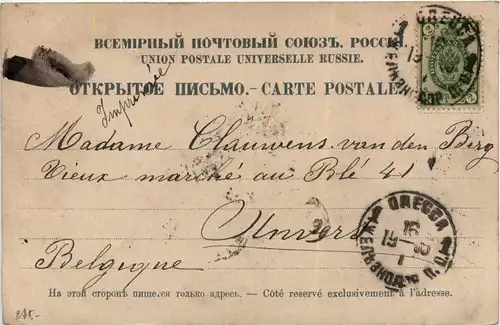 ВСЕМІРНЫЙ ПОЧТОВЫЙ СОЮЗЪ. РОССІЯ.
UNION POSTALE UNIVERSELLE RUSSIE.
ОТКРЫТОЕ ПИСЬМО.-CARTE POSTALE
Imprimée
ОДЕССА
19
Madame Clauwens-van den Berg
Vieux marché au Blé 41
Anvers
Belgique
ОДЕССА
16
19
1
На этой сторонѣ пишется только адресъ. — Côté reservé exclusivement à l'adresse.
275.-